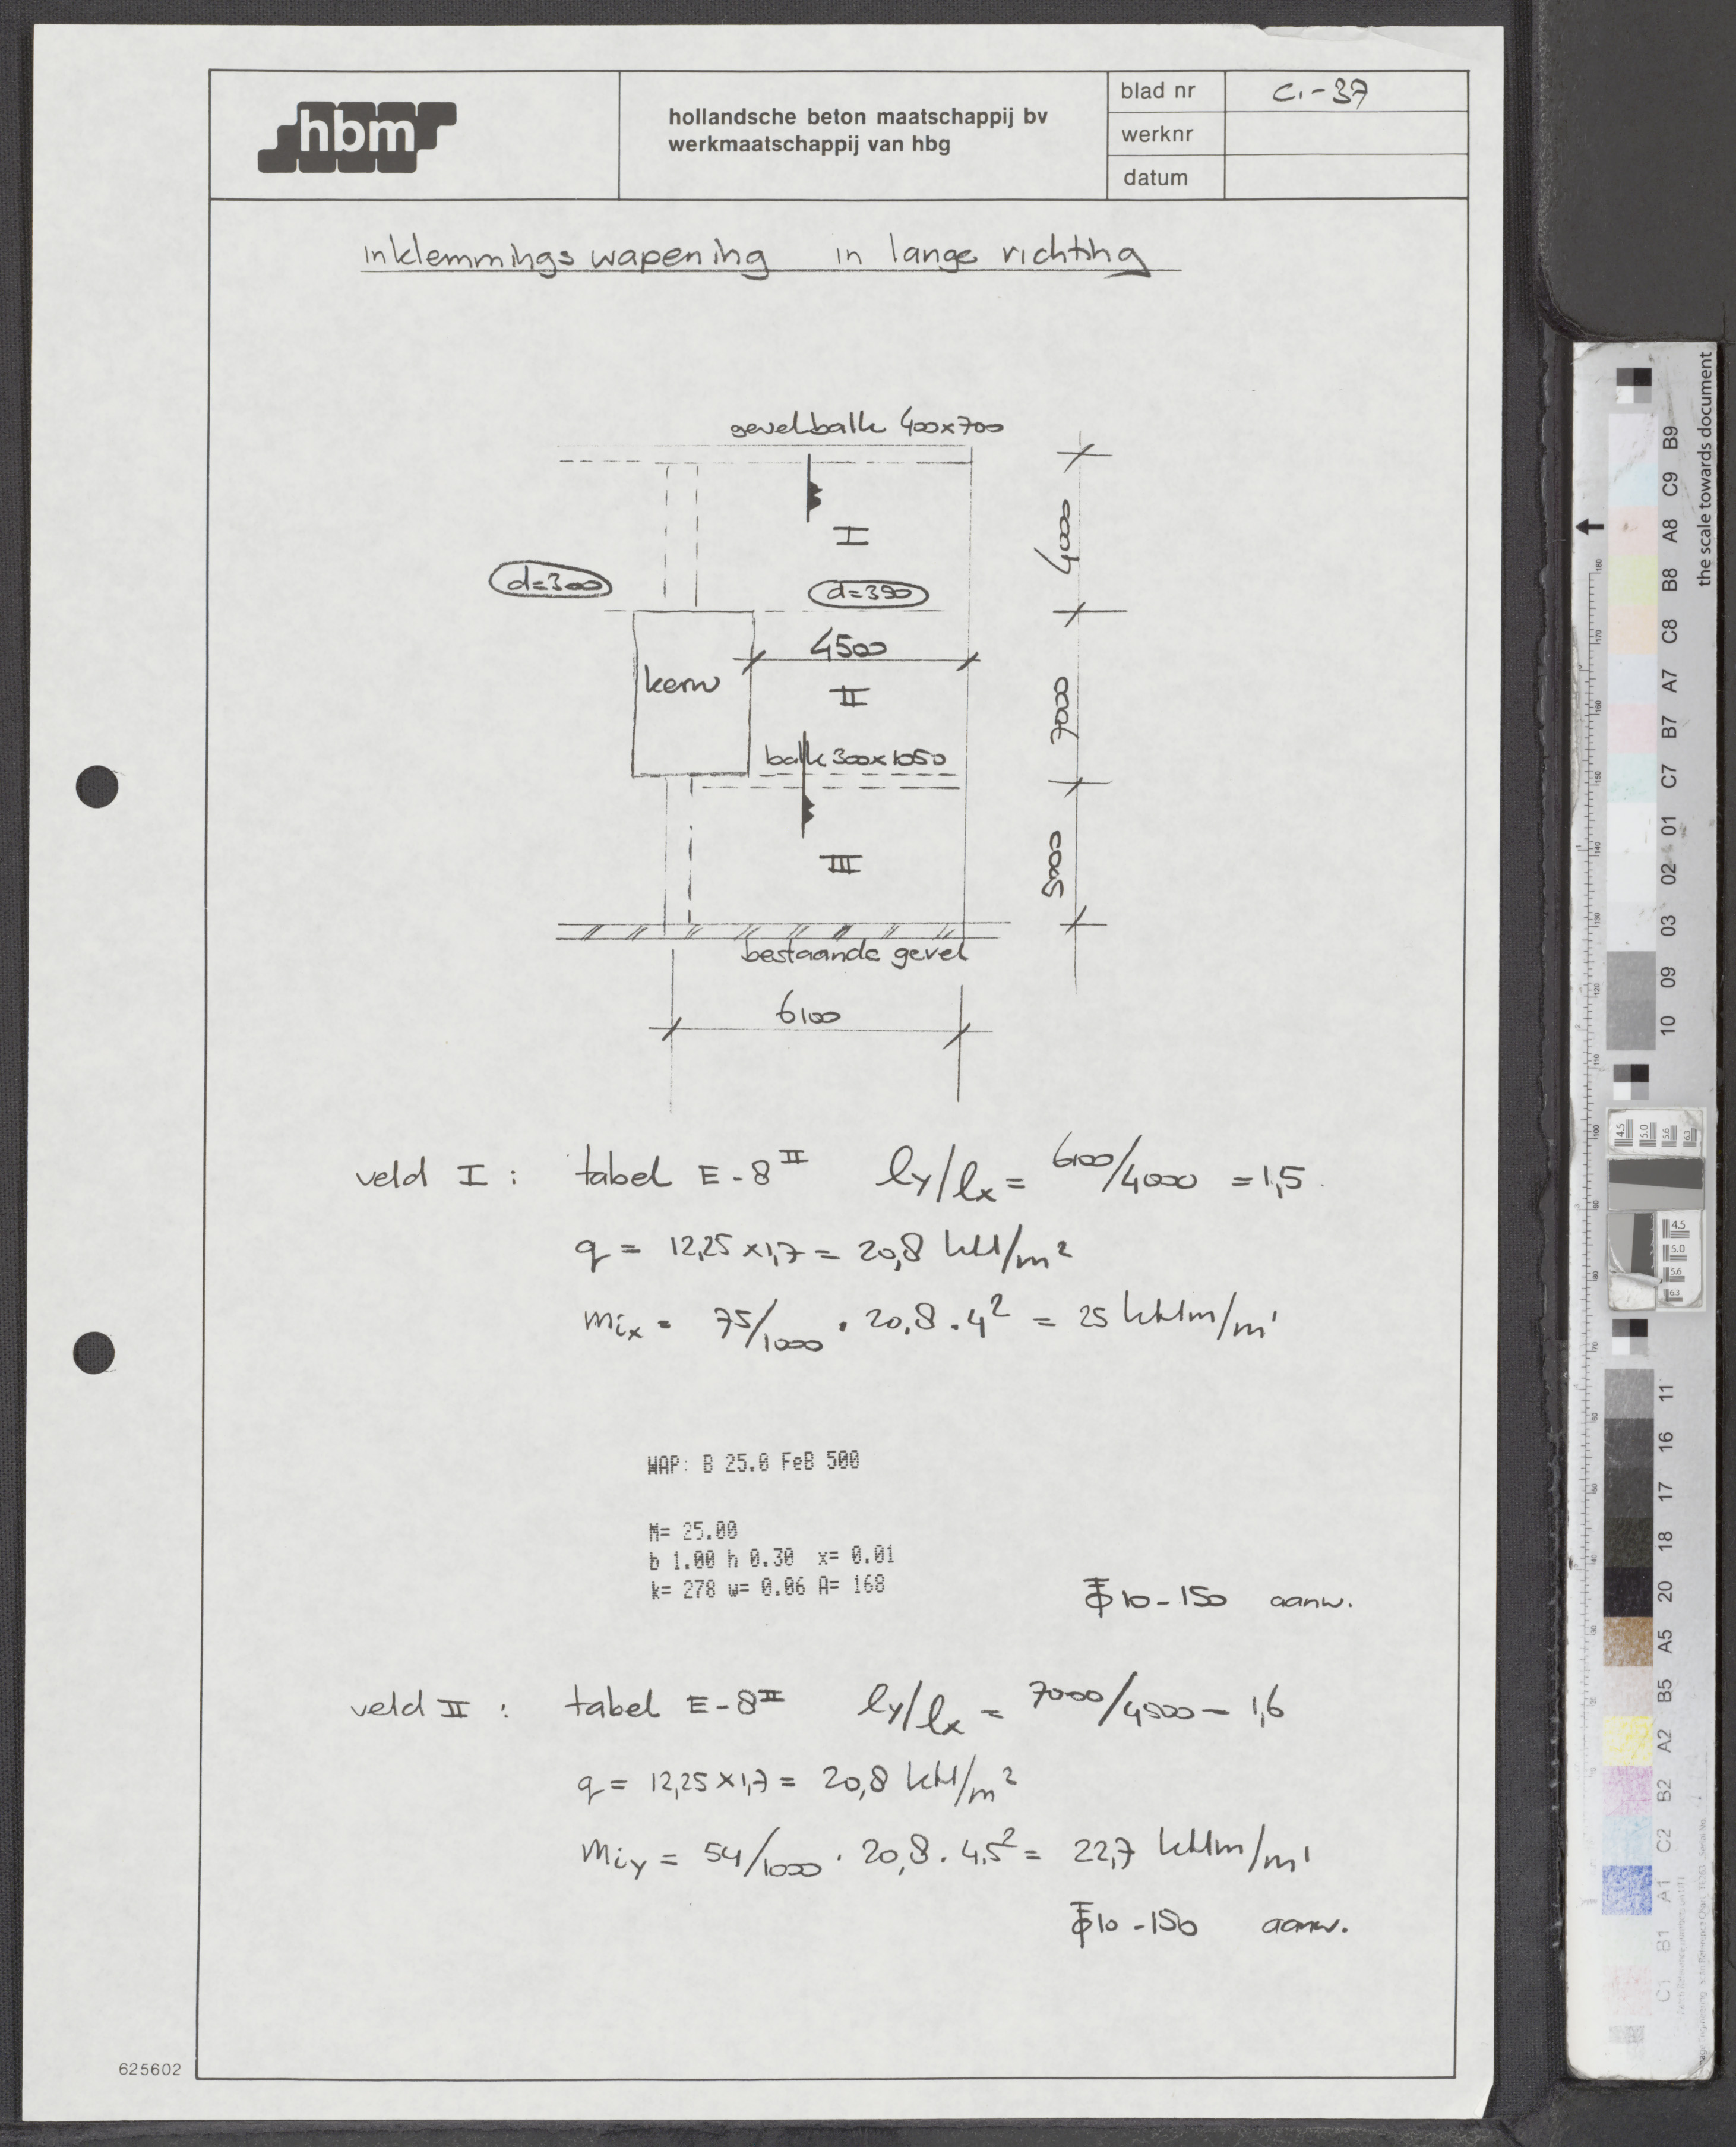 hbm
hollandsche beton maatschappij bv
werkmaatschappij van hbg
blad nr C.-37
werknr
datum
inklemmings wapening in lange richting
gevelbalk 400x700
I
4000
d=300
d=350
4500
kern
II
7000
balk 300x1050
III
5000
bestaande gevel
6100
veld I : tabel E-8 II ly/lx = 6100/4000 = 1,5
q = 12,25 x 1,7 = 20,8 kN/m²
mix = 75/1000 . 20,8 . 4² = 25 kNm/m'
WAP: B 25.0 FeB 500
M= 25.00
b 1.00 h 0.30 x= 0.01
k= 278 w= 0.06 A= 168
Φ 10-150 aanw.
veld II : tabel E-8 II ly/lx = 7000/4500 = 1,6
q = 12,25 x 1,7 = 20,8 kN/m²
miy = 54/1000 . 20,8 . 4,5² = 22,7 kNm/m'
Φ 10-150 aanw.
625602
the scale towards document
B9
C9
A8
B8
C8
A7
B7
C7
01
02
03
09
10
11
16
17
18
20
A5
B5
A2
B2
C2
A1
B1
C1